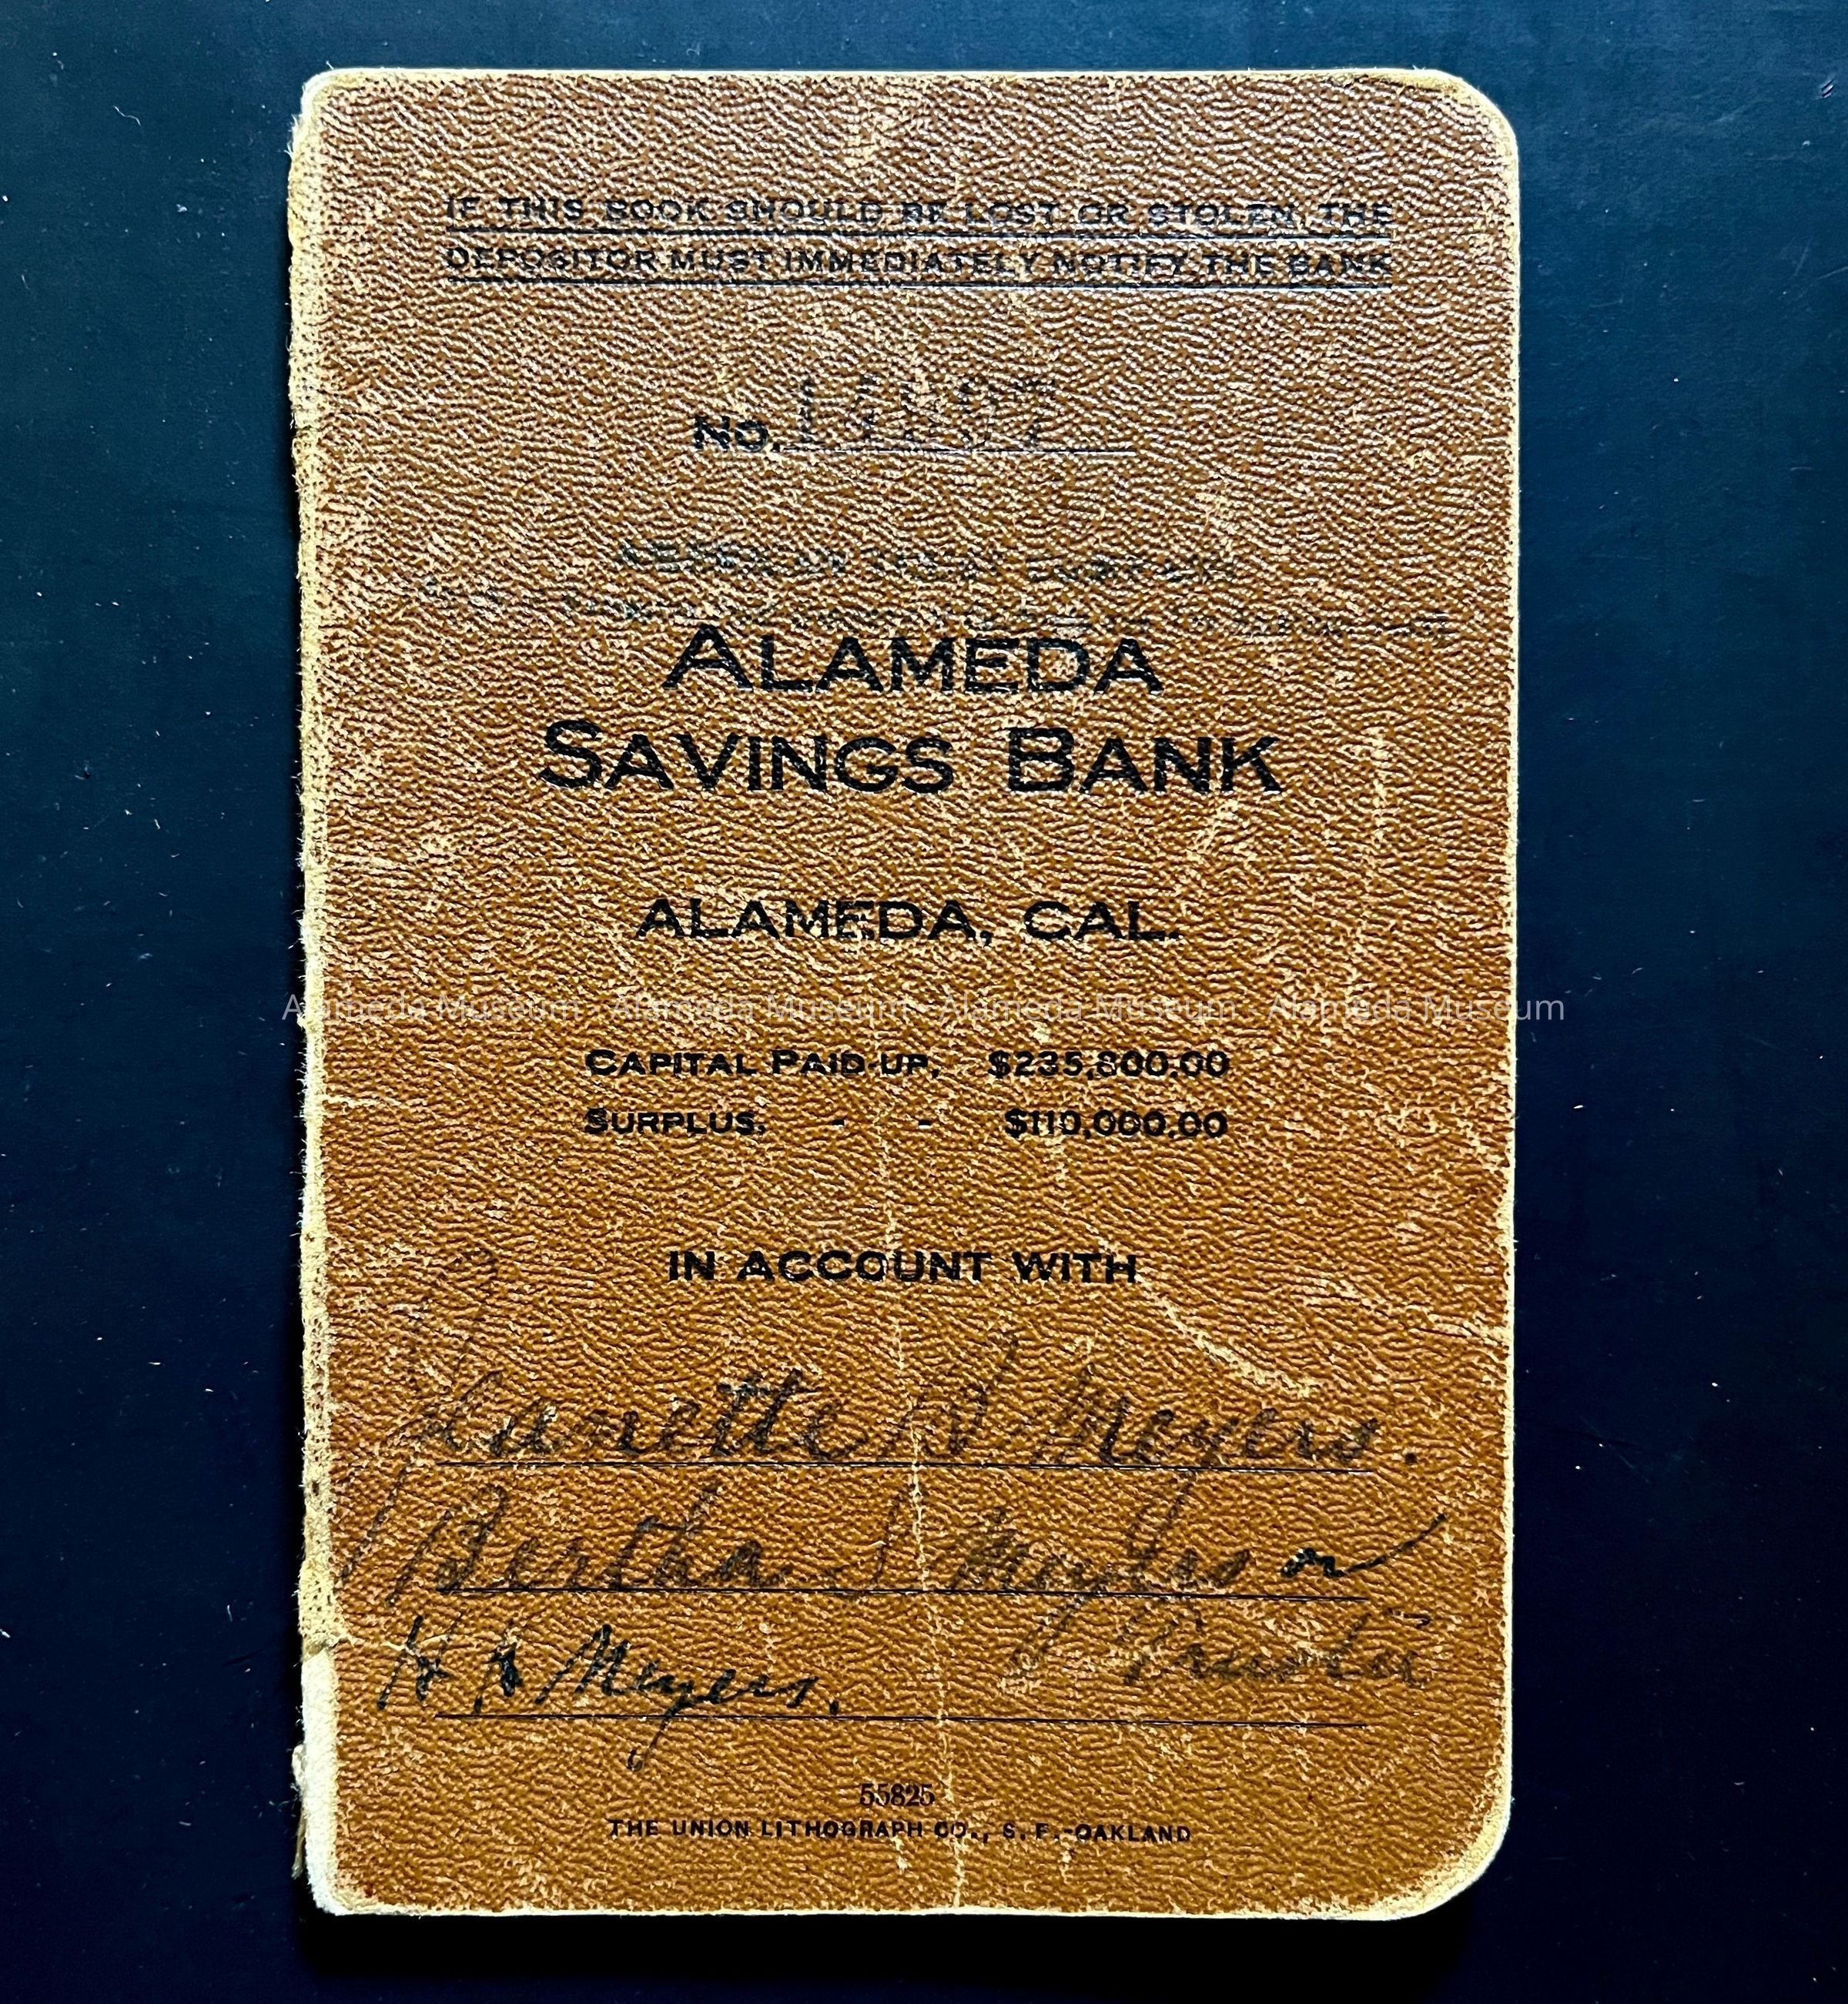 IF THIS BOOK SHOULD BE LOST OR STOLEN, THE
DEPOSITOR MUST IMMEDIATELY NOTIFY THE BANK
No.
ALAMEDA
SAVINGS BANK
ALAMEDA, CAL.
Alameda Museum · Alameda Museum · Alameda Museum · Alameda Museum
CAPITAL PAID-UP, $235,800.00
SURPLUS, - - $110,000.00
IN ACCOUNT WITH
Meyers.
Bertha Meyers or
H H Meyers.
55825
THE UNION LITHOGRAPH CO., S. F.-OAKLAND